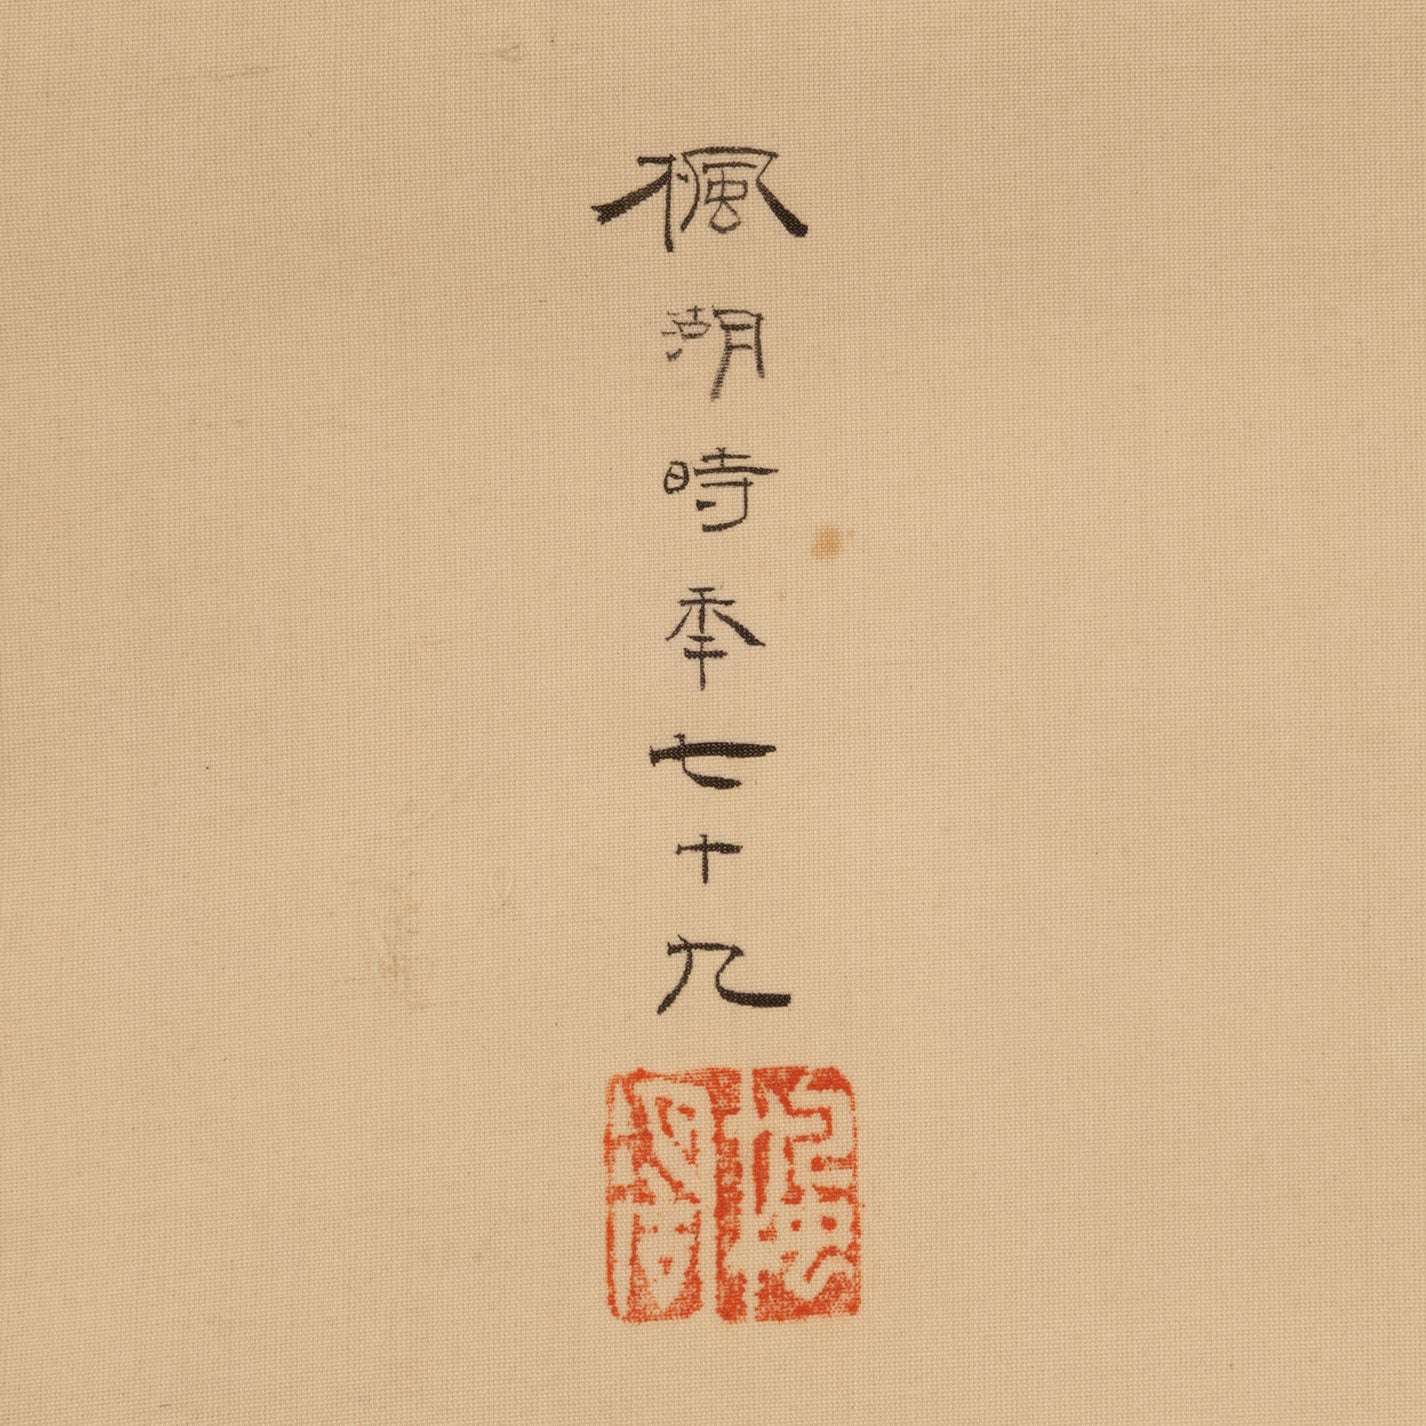 楓湖時年七十九